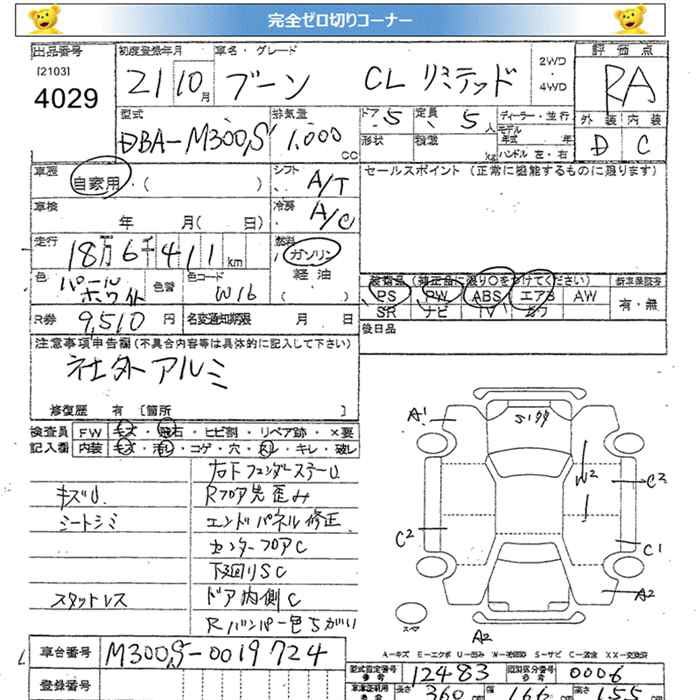 完全ゼロ切りコーナー
出品番号 初度登録年月 車名・グレード 2WD・4WD 評価点
[2103]
4029 21 10月 ブーン CL リミテッド RA
型式 排気量 ドア 5 定員 5人 ディーラー・並行 外装 内装
DBA-M300S 1,000cc 形状 積載 kg モデル年式 年 ハンドル 左・右 D C
車歴 自家用・( ) シフト A/T セールスポイント (正常に機能するものに限ります)
車検 年 月( 日) 冷房 A/C
走行 18万6千411km 燃料 ガソリン 軽油
色 パールホワイト 色替 色コード W16 装備品 (純正品に限り○をつけてください) 新車保証書
PS PW ABS エアB AW 有・無
SR ナビ TV カワ
R券 9,510円 名変通知期限 月 日 後日品
注意事項申告欄(不具合内容等は具体的に記入して下さい)
社外アルミ
修復歴 有 [箇所 ]
検査員 FW キズ・飛石・ヒビ割・リペア跡・×要
記入欄 内装 キズ・汚レ・コゲ・穴・スレ・キレ・破レ
右下フェンダーステーU
キズU Rフロア先歪み
シートシミ エンドパネル修正
センターフロアC
下廻りSC
スタットレス ドア内側C
Rバンパー色ちがい
A1 S1 99
W2 C2
C2 C1
A2
スペア A2
A-キズ E-エクボ U-凹み W-補修跡 S-サビ C-腐食 XX-交換済
車台番号 M300S-0019724
型式指定番号 12483 類別区分番号 0006
登録番号 長さ 360cm 166cm 155cm